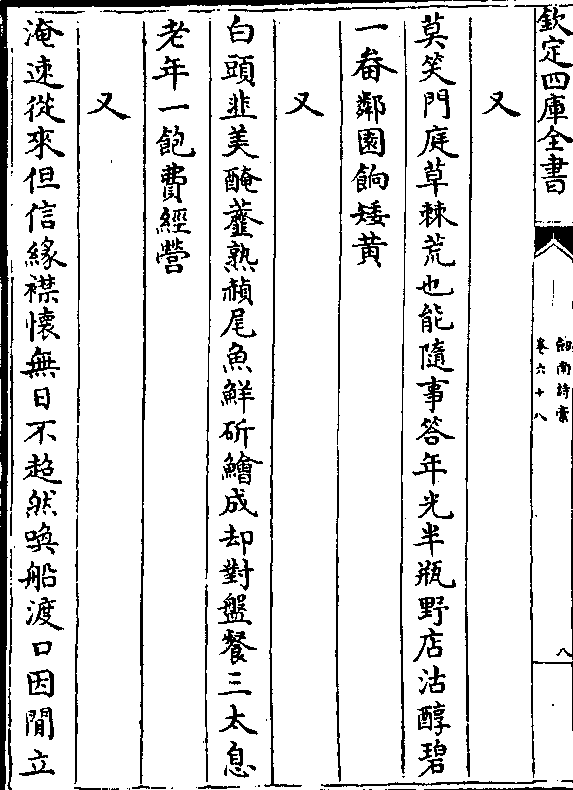 欽定四庫全書
劍南詩稾
卷六十八
八
又
莫笑門庭草棘荒也能隨事答年光半瓶野店沽醇碧
一畚鄰園餉矮黄
又
白頭韭美醃虀熟赬尾魚鮮斫鱠成却對盤餐三太息
老年一飽費經營
又
淹速從來但信緣襟懷無日不超然喚船渡口因閒立